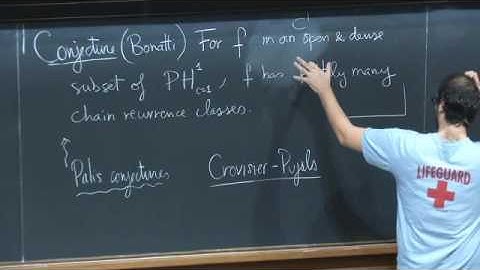 Conjecture (Bonatti) For f in an open & dense
C¹
subset of PH¹c=1, f has many
chain recurrence classes.
Palis conjectures Crovisier-Pujals
LIFEGUARD